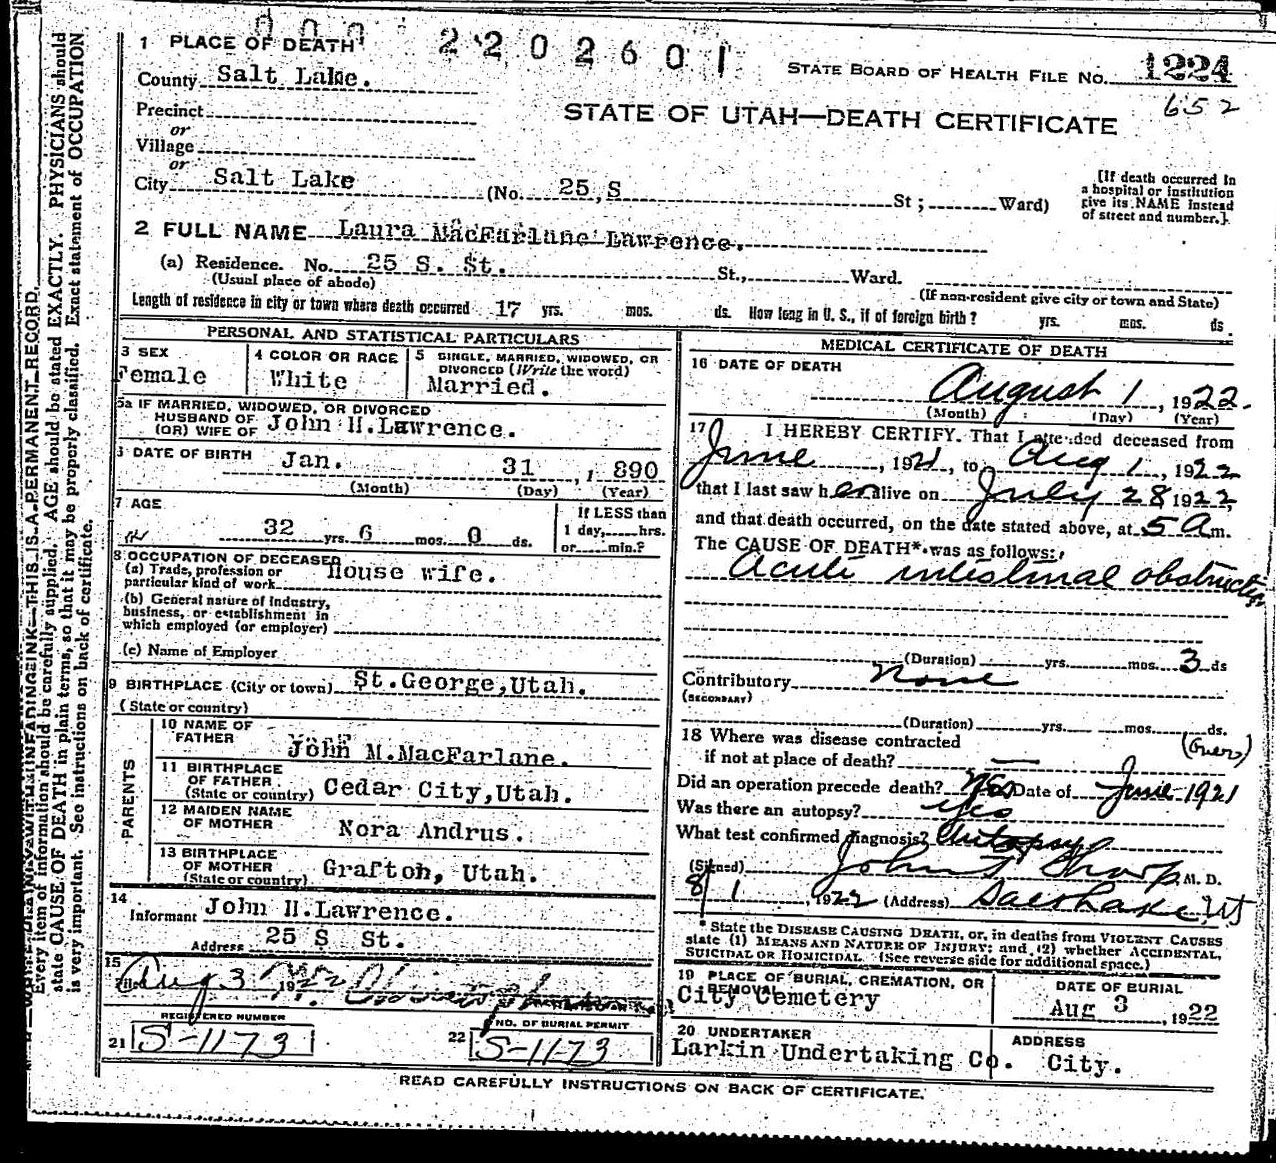 000 2202601
1 PLACE OF DEATH
County Salt Lake.
STATE BOARD OF HEALTH FILE No. 1224
652
Precinct
or
Village
or
STATE OF UTAH—DEATH CERTIFICATE
City Salt Lake (No. 25 S St; Ward)
[If death occurred in
a hospital or institution
give its NAME instead
of street and number.]
2 FULL NAME Laura MacFarlane Lawrence.
(a) Residence. No. 25 S. St. St., Ward.
(Usual place of abode) (If non-resident give city or town and State)
Length of residence in city or town where death occurred 17 yrs. mos. ds. How long in U. S., if of foreign birth? yrs. mos. ds.
PERSONAL AND STATISTICAL PARTICULARS
3 SEX
Female
4 COLOR OR RACE
White
5 SINGLE, MARRIED, WIDOWED, OR
DIVORCED (Write the word)
Married.
5a IF MARRIED, WIDOWED, OR DIVORCED
HUSBAND OF
(OR) WIFE OF John H.Lawrence.
DATE OF BIRTH Jan. 31 , 1890
(Month) (Day) (Year)
7 AGE
32 yrs. 6 mos. 0 ds.
If LESS than
1 day, hrs.
or min.?
8 OCCUPATION OF DECEASED
(a) Trade, profession or
particular kind of work House wife.
(b) General nature of Industry,
business, or establishment in
which employed (or employer)
(c) Name of Employer
9 BIRTHPLACE (City or town) St.George,Utah.
(State or country)
PARENTS
10 NAME OF
FATHER John M.MacFarlane.
11 BIRTHPLACE
OF FATHER
(State or country) Cedar City,Utah.
12 MAIDEN NAME
OF MOTHER Nora Andrus.
13 BIRTHPLACE
OF MOTHER
(State or country) Grafton, Utah.
14
Informant John H.Lawrence.
Address 25 S St.
15
Filed Aug 3 1922
REGISTERED NUMBER
21 S-1173
NO. OF BURIAL PERMIT
22 S-1173
MEDICAL CERTIFICATE OF DEATH
16 DATE OF DEATH
August 1, 1922.
(Month) (Day) (Year)
17 I HEREBY CERTIFY. That I attended deceased from
June, 1921, to Aug 1, 1922
that I last saw her alive on July 28 1922,
and that death occurred, on the date stated above, at 5 A m.
The CAUSE OF DEATH* was as follows:
Acute intestinal obstruction
(Duration) yrs. mos. 3 ds
Contributory None
(SECONDARY)
(Duration) yrs. mos. ds.
18 Where was disease contracted
if not at place of death?
Did an operation precede death? Yes Date of June 1921
Was there an autopsy? yes
What test confirmed diagnosis? Autopsy
(Signed) John F Sharp M. D.
8/1, 1922 (Address) Salt Lake, Ut
*State the DISEASE CAUSING DEATH, or, in deaths from VIOLENT CAUSES
state (1) MEANS AND NATURE OF INJURY; and (2) whether ACCIDENTAL,
SUICIDAL or HOMICIDAL. (See reverse side for additional space.)
19 PLACE OF BURIAL, CREMATION, OR
REMOVAL
City Cemetery
DATE OF BURIAL
Aug 3, 1922
20 UNDERTAKER
Larkin Undertaking Co.
ADDRESS
City.
READ CAREFULLY INSTRUCTIONS ON BACK OF CERTIFICATE.
UNFADING INK—THIS IS A PERMANENT RECORD
Every item of information should be carefully supplied. AGE should be stated EXACTLY. PHYSICIANS should
state CAUSE OF DEATH in plain terms, so that it may be properly classified. Exact statement of OCCUPATION
is very important. See instructions on back of certificate.